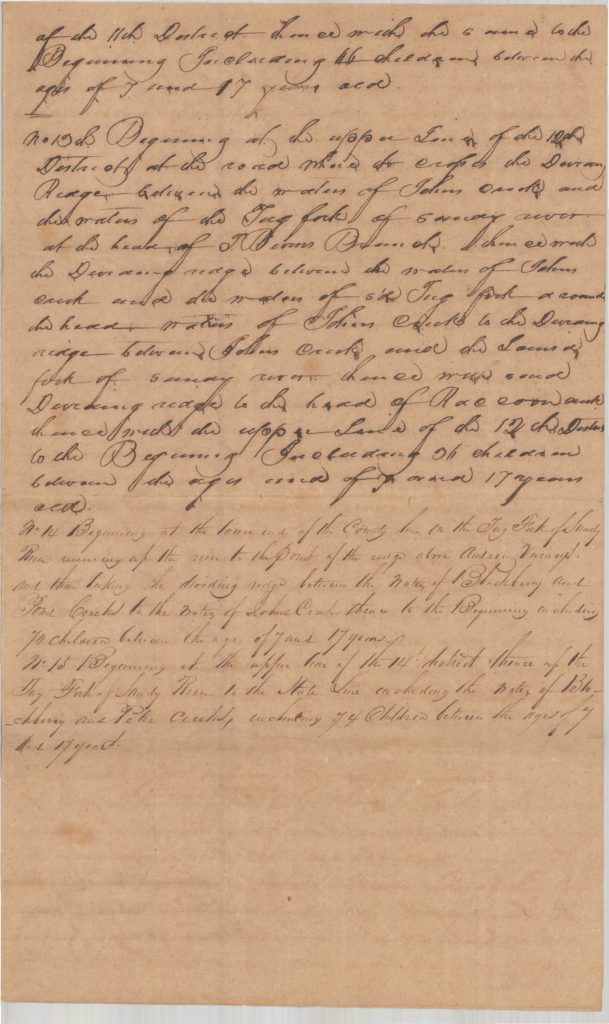 of the 11th District thence with the same to the
Beginning Including 46 children between the
ages of 7 and 17 years old.
No 13th Begening at the upper Line of the 12th
District at the road where it crosses the Deviding
Ridge between the waters of Johns creek and
the waters of the Tug fork of Sandy river
at the head of Bevins Branch. thence with
the Deviding ridge between the waters of Johns
creek and the waters of Tug fork around
the head waters of Johns Creek to the Deviding
ridge between Johns creek and the Louisa
fork of Sandy river thence with said
Deviding ridge to the head of Raccoon creek
thence with the upper Line of the 12th District
to the Beginning Including 36 children
between the ages and of 7 and 17 years
old.
No 14 Beginning at the lower end of the County line on the Tug Fork of Sandy
River running up the river to the point of the ridge above Andrew Varneys.
and then taking the dividing ridge between the waters of Blackberry and
Pond Creeks to the waters of Johns Creek thence to the Beginning including
children between the ages of 7 and 17 years.
No 15 Beginning at the upper line of the 14th district thence up the
Tug Fork of Sandy River to the State Line including the waters of Bla-
-ckberry and Peter Creeks, including 74 Children between the ages of 7
and 17 years.